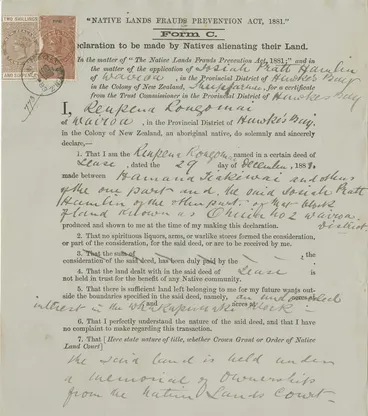 "NATIVE LANDS FRAUDS PREVENTION ACT, 1881."
FORM C.
Declaration to be made by Natives alienating their Land.
In the matter of "The Native Lands Frauds Prevention Act, 1881," and in
the matter of the application of Josiah Pratt Hamlin
of Wairoa, in the Provincial District of Hawkes Bay,
in the Colony of New Zealand, for a certificate
from the Trust Commissioner in the Provincial District of Hawke's Bay
I, Reupena Rongomai
of Wairoa, in the Provincial District of Hawke's Bay,
in the Colony of New Zealand, an aboriginal native, do solemnly and sincerely
declare,—
1. That I am the Reupena named in a certain deed of
Lease, dated the 29 day of December, 188
made between Hamana Tiakiwai and others
of the one part and the said Josiah Pratt
Hamlin of the other part of that block
of land known as No 2 Wairoa
District
produced and shown to me at the time of my making this declaration.
2. That no spirituous liquors, arms, or warlike stores formed the consideration,
or part of the consideration, for the said deed, or are to be received by me.
3. That the sum of : the
consideration of the said deed, has been duly paid by the
4. That the land dealt with in the said deed of Lease is
not held in trust for the benefit of any Native community.
5. That there is sufficient land left belonging to me for my future wants out-
side the boundaries specified in the said deed, namely, an undivided acres of
interest in the and acres of Block
6. That I perfectly understand the nature of the said deed, and that I have
no complaint to make regarding this transaction.
7. That (Here state nature of title, whether Crown Grant or Order of Native
Land Court)
the said land is held under
a memorial of ownership
from the Native Lands Court